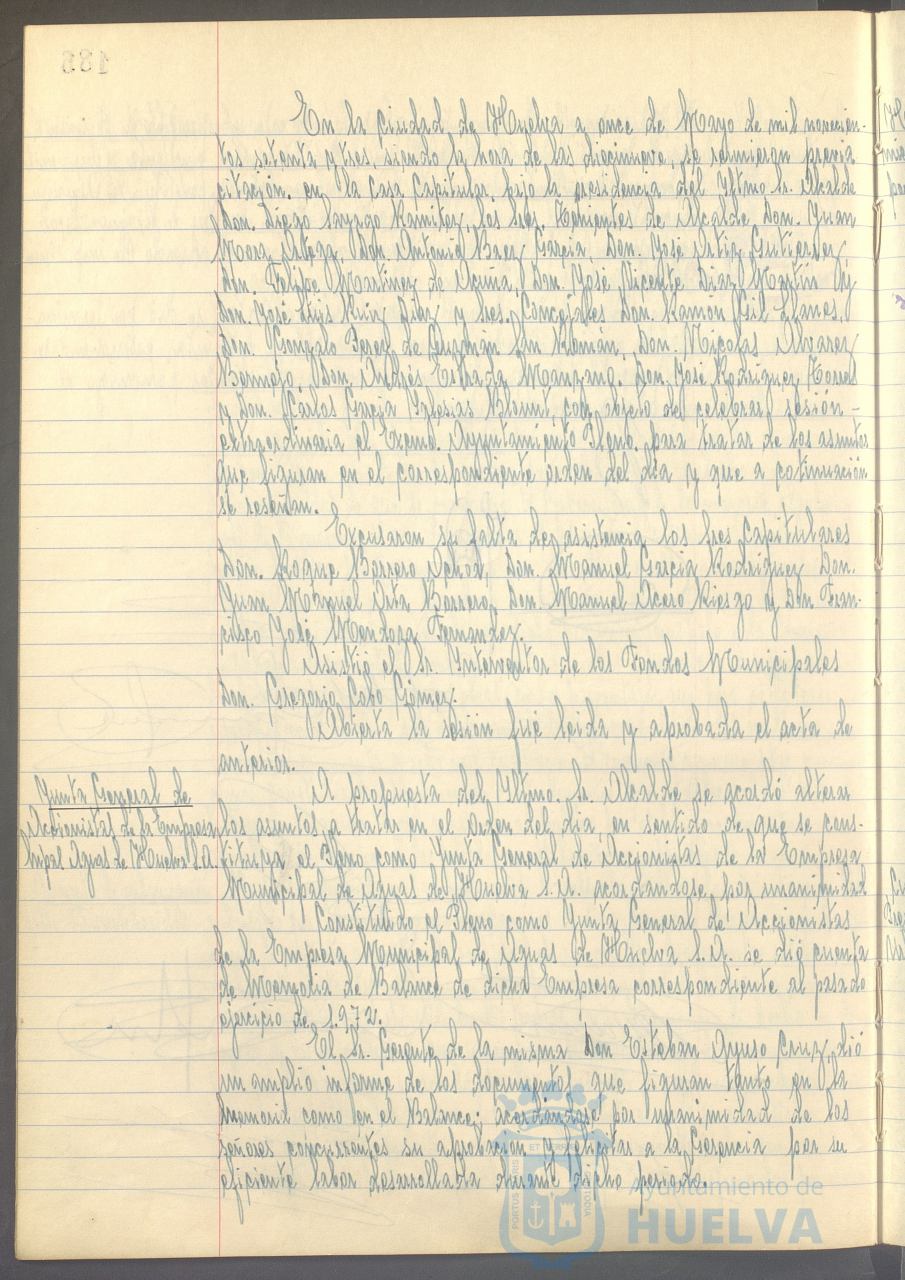 En la ciudad de Huelva a once de Mayo de mil novecien-
tos setenta y tres, siendo la hora de las diecinueve, se reunieron previa
citación en la Casa Capitular bajo la presidencia del Yltmo Sr. Alcalde
Don. Diego Sayago Ramirez, los Sres. Tenientes de Alcalde Don. Juan
Mora Ortega, Don. Antonio Baez Garcia, Don. José Ortiz Gutierrez,
Don. Felipe Martinez de Acuña, Don. José Vicente Diaz Martín y
Don. José Luis Ruiz Diaz y Sres. Concejales Don. Ramón Gil Llanes,
Don. Gonzalo Perez de Guzmán San Román, Don. Nicolas Alvarez
Bermejo, Don. Andrés Estrada Manzano, Don José Rodriguez Torres
y Don. Carlos Garcia Yglesias Blount, con objeto de celebrar sesión -
extraordinaria el Excmo. Ayuntamiento Pleno, para tratar de los asuntos
que figuran en el correspondiente orden del dia y que a cotinuación
se reseñan.
Excusaron su falta de asistencia los Sres Capitulares
Don. Roque Barrero Ochoa, Don. Manuel Garcia Rodriguez Don.
Juan Manuel Oita Barrero, Don Manuel Acero Riesgo y Don Fran-
cisco José Mendoza Fernandez.
Asistió el Sr. Interventor de los Fondos Municipales
Don. Gregorio Cobo Gómez.
Abierta la sesión fué leida y aprobada el acta de
anterior.
Junta General de
Accionistas de la Empresa
Mipal Aguas de Huelva S.A.
A propuesta del Yltmo. Sr. Alcalde se acordó alterar
los asuntos a tratar en el Orden del dia en sentido de que se cons-
tituya el Pleno como Junta General de Accionistas de la Empresa
Municipal de Aguas de Huelva S.A. acordandose por unanimidad
Constituido el Pleno como Junta General de Accionistas
de la Empresa Municipal de Aguas de Huelva S.A. se dió cuenta
de Memoria de Balance de dicha Empresa correspondiente al pasado
ejercicio de 1.972.
El Sr. Gerente de la misma Don Esteban Ayuso Cruz, dió
un amplio informe de los documentos que figuran tanto en la
Memoria como en el Balance; acordandose por unanimidad de los
señores concurrentes su aprobación y felicitar a la Gerencia por su
eficiente labor desarrollada durante dicho periodo.
PORTUS MARIS ET TERRAE CUSTODIA
Ayuntamiento de
HUELVA